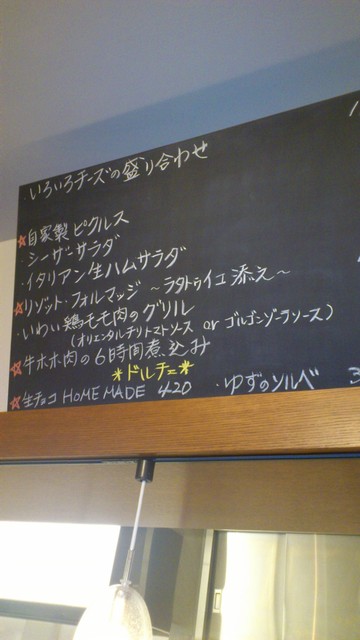 ・いろいろチーズの盛り合わせ
☆自家製ピクルス
・シーザーサラダ
・イタリアン生ハムサラダ
☆リゾット・フォルマッジ ～ラタトゥイユ添え～
・いわい鶏モモ肉のグリル
(オリエンタルチリトマトソース or ゴルゴンゾーラソース)
☆牛ホホ肉の6時間煮込み
*ドルチェ*
☆生チョコ HOME MADE 420 ・ゆずのソルベ